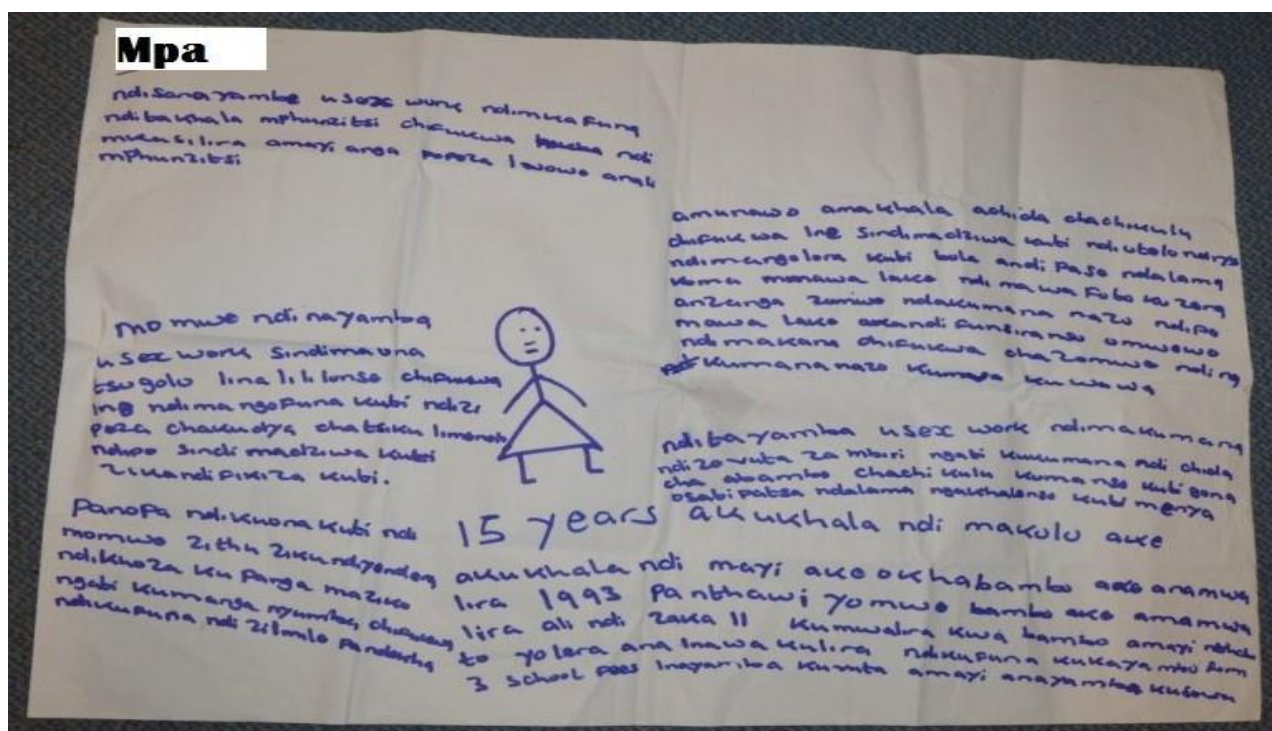 Mpa
ndisanayambe usex work ndimkafuna
ndibakhala mphunzitsi chifukwa ndi
mkasilira amayi anga popeza iwowo anali
mphunzitsi
amunawo amakhala achida chachikulu
chifukwa ine sindimadziwa kubi ndiubolo ndiye
ndimangolora kubi bola andipase ndalama
koma mmawa lake ndimawafotokozera
anzanga zomwe ndakumana nazo ndipo
mawa lake akandifunsiranso omwewo
ndimakana chifukwa cha zomwe ndina
kumananazo kumasa kuwawa
momwe ndinayamba
usex work sindimaona
tsogolo lina lililonse chifukwa
ine ndimangofuna kubi ndizi
peza chakudya chatsiku limonelo
ndipo sindimadziwa kubi
zikandifikiza kubi.
ndibayamba usex work ndimakumana
ndizovuta zambiri ngabi kukumana ndi chida
cha abambo chachikulu kumanso kubi gona
osabipatsa ndalama ngakhalenso kubi menya
panopa ndikuona kubi ndi
momwe zithu zikundiyendera
ndikhoza kupanga maziko
ngabi kumanga nyumba chifukwa
ndikufuna ndizilimile pandekha
15 years akukhala ndi makolo ake
akukhala ndi mayi ake okha bambo ake anamwa
lira 1993 panthawi yomwe bambo ake amamwa
lira ali ndi zaka 11 kumwalira kwa bambo amayi
to yolera ana inawakulira ndikufuna kukayamba form
3 school fees inayamba kumuta amayi anayamba